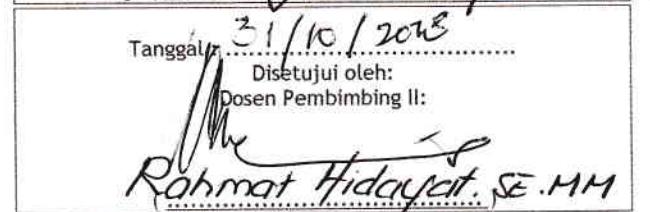 Tanggal, 31/10/2013
Disetujui oleh:
Dosen Pembimbing II:
Rahmat Hidayat. SE.MM